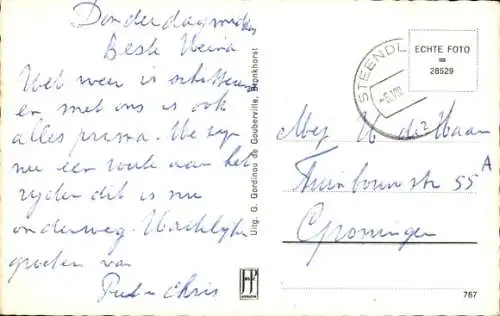 Donderdagmidden
Beste Meina
Het weer is schitterend
en met ons is ook
alles prima. We zijn
nu een week aan het
rijden dit is nu
onderweg. Hartelijke
groeten van
Piet en Chris
Uitg. G. Gordinou de Gouberville, Bronkhorst
STEENDE
-6.VIII
ECHTE FOTO
=
28529
Mej de Haan
Tuinbouwstr 55 A
Groningen
787